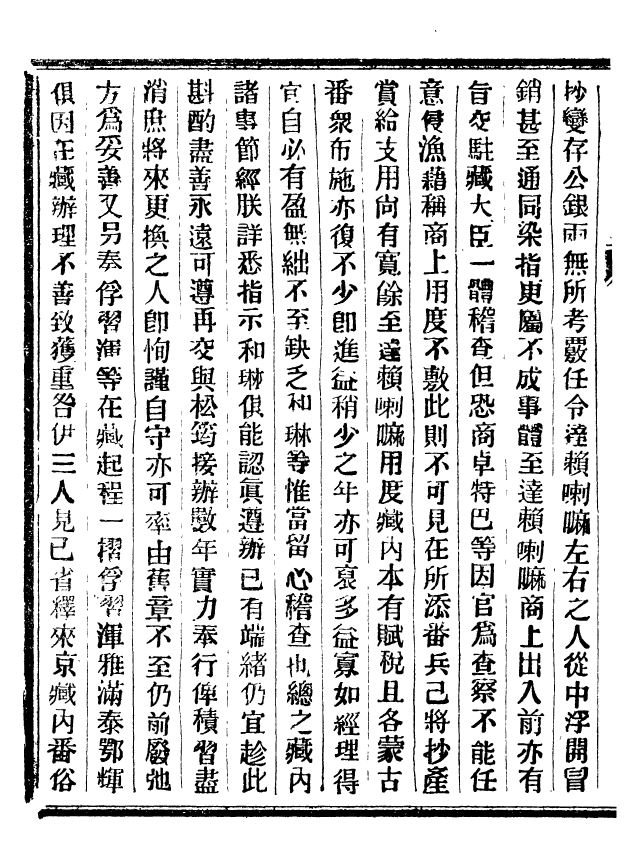 抄變存公銀兩無所考覈任令達賴喇嘛左右之人從中浮開冒
銷甚至通同染指更屬不成事體至達賴喇嘛商上出入前亦有
旨交駐藏大臣一體稽查但恐商卓特巴等因官爲查察不能任
意侵漁藉稱商上用度不敷此則不可見在所添番兵已將抄產
賞給支用尙有寬餘至達賴喇嘛用度藏內本有賦稅且各蒙古
番衆布施亦復不少卽進益稍少之年亦可裒多益寡如經理得
宜自必有盈無絀不至缺乏和琳等惟當留心稽查也總之藏內
諸事節經朕詳悉指示和琳俱能認眞遵辦已有端緒仍宜趁此
斟酌盡善永遠可遵再交與松筠接辦數年實力奉行俾積習盡
消庶將來更換之人卽恂謹自守亦可率由舊章不至仍前廢弛
方爲妥善又另奏俘習渾等在藏起程一摺俘習渾雅滿泰鄂輝
俱因在藏辦理不善致獲重咎伊三人見已省釋來京藏內番俗